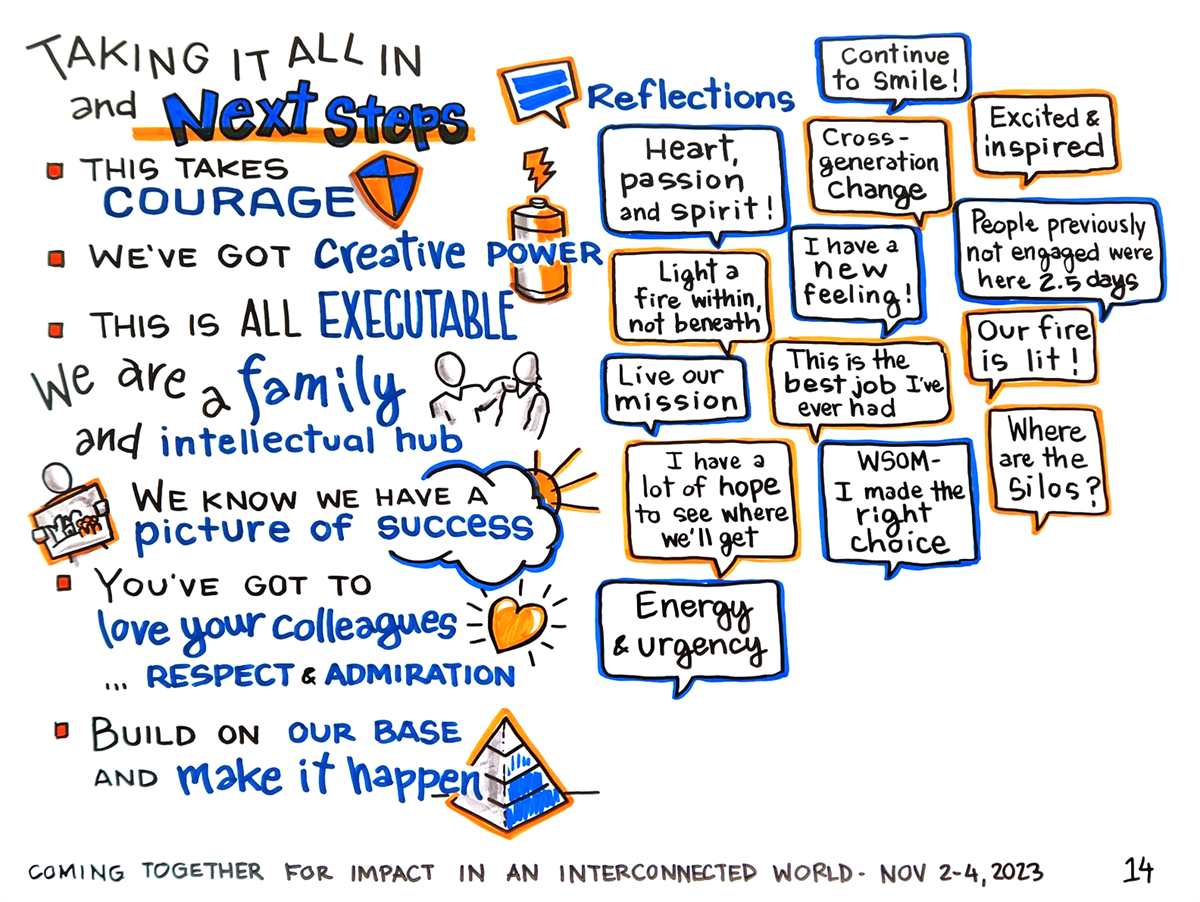 TAKING IT ALL IN
and Next Steps
THIS TAKES
COURAGE
WE'VE GOT creative POWER
THIS IS ALL EXECUTABLE
We are a family
and intellectual hub
WE KNOW WE HAVE A
picture of success
YOU'VE GOT TO
love your colleagues
... RESPECT & ADMIRATION
BUILD ON OUR BASE
AND make it happen
Reflections
Continue
to smile!
Heart,
passion
and spirit!
Cross-
generation
Change
Excited &
inspired
Light a
fire within,
not beneath
I have a
new
feeling!
People previously
not engaged were
here 2.5 days
Live our
mission
This is the
best job I've
ever had
Our fire
is lit!
I have a
lot of hope
to see where
we'll get
WSOM-
I made the
right
choice
Where
are the
Silos?
Energy
& urgency
COMING TOGETHER FOR IMPACT IN AN INTERCONNECTED WORLD - NOV 2-4, 2023
14